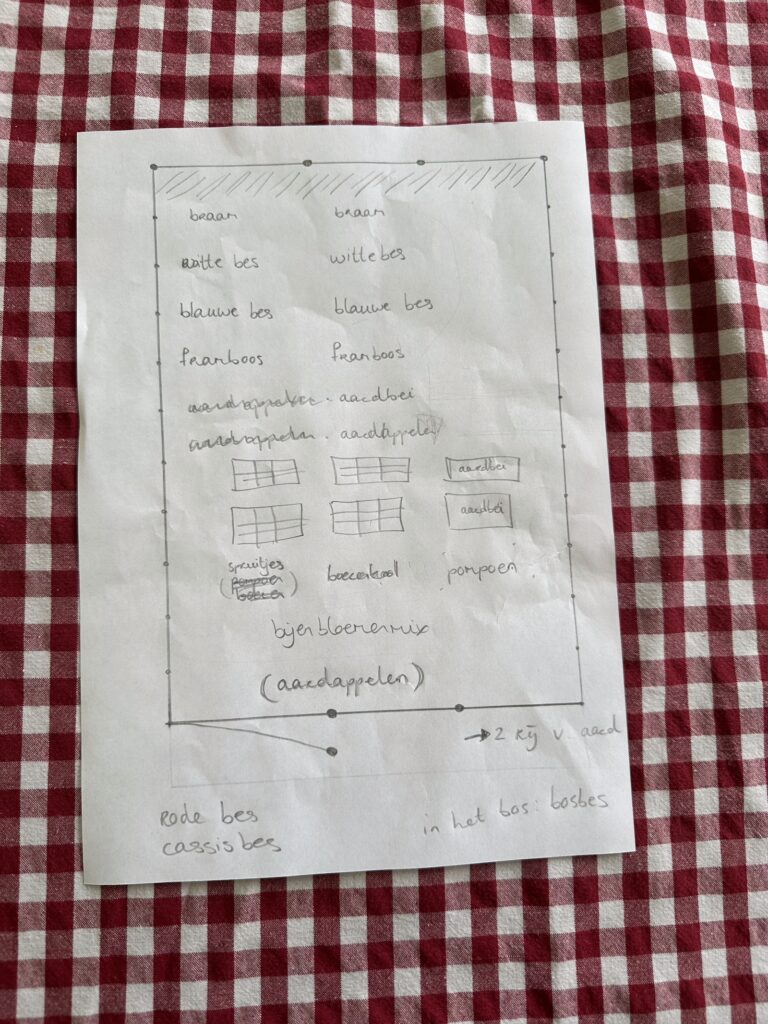 braam braam
witte bes witte bes
blauwe bes blauwe bes
framboos framboos
aardappelen . aardbei
aardappelen . aardappelen
aardbei
aardbei
spruitjes boerenkool pompoen
(pompoen
boeren)
bijenbloemenmix
(aardappelen)
→ 2 rij v. aard
Rode bes
cassisbes
in het bos: bosbes